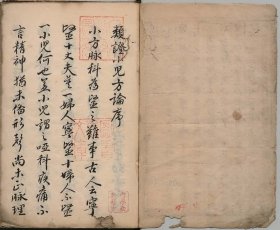 類證小兒方論序
小方脉科為醫之難事古人云寧
醫十丈夫莫醫一婦人寧醫十婦人不醫
一小兒何也盖小兒謂之啞科疾痛不
言精神猶未備形聲尚未正脉理